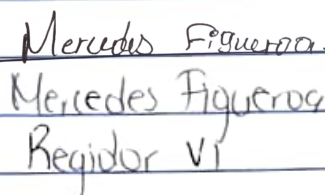 Mercedes Figueroa
Mercedes Figueroa
Regidor VI